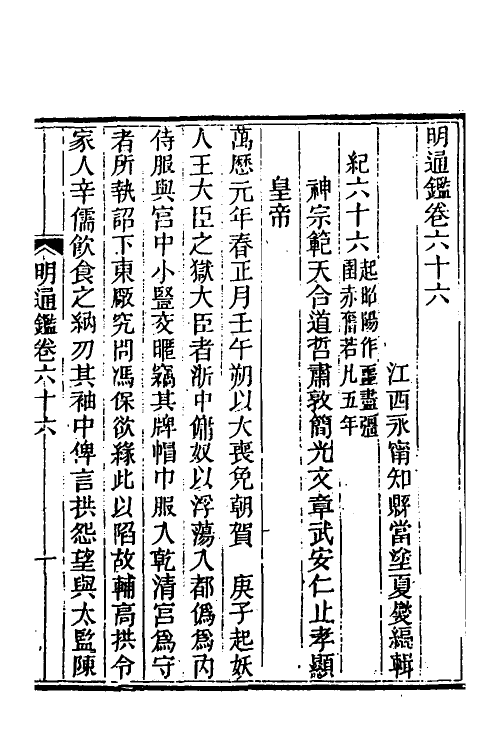 明通鑑卷六十六
江西永甯知縣當塗夏燮編輯
紀六十六起昭陽作噩盡彊圉赤奮若凡五年
神宗範天合道哲肅敦簡光文章武安仁止孝顯
皇帝
萬歷元年春正月壬午朔以大喪免朝賀　庚子起妖
人王大臣之獄大臣者浙中傭奴以浮蕩入都僞爲內
侍服與宮中小豎交暱竊其牌帽巾服入乾清宮爲守
者所執詔下東厰究問馮保欲緣此以陷故輔高拱令
家人辛儒飮食之納刃其袖中俾言拱怨望與太監陳
明通鑑卷六十六
一